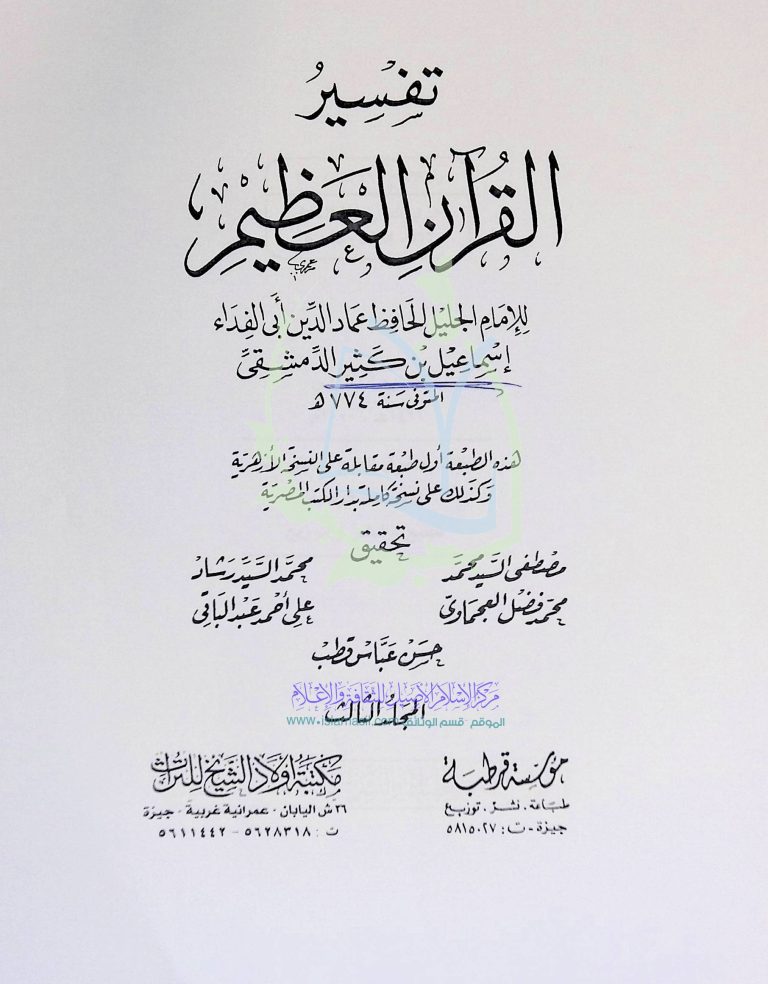 تفسير
القرآن العظيم
للإمام الجليل الحافظ عماد الدين أبي الفداء
إسماعيل بن كثير الدمشقي
المتوفى سنة ٧٧٤ هـ
هذه الطبعة أول طبعة مقابلة على النسخة الأزهرية
وكذلك على نسخة كاملة بدار الكتب المصرية
تحقيق
مصطفى السيد محمد محمد السيد رشاد
محمد فضل العجماوي علي أحمد عبد الباقي
حسن عباس قطب
مركز الإسلام الأصيل للثقافة والإعلام
المجلد الثالث
الموقع - قسم الوثائق
مؤسسة قرطبة
طباعة . نشر . توزيع
جيزة - ت : ٥٨١٥٠٢٧
مكتبة أولاد الشيخ للتراث
٣٦ ش اليابان - عمرانية غربية - جيزة
ت : ٥٦٢٨٣١٨ - ٥٦١١٤٤٢